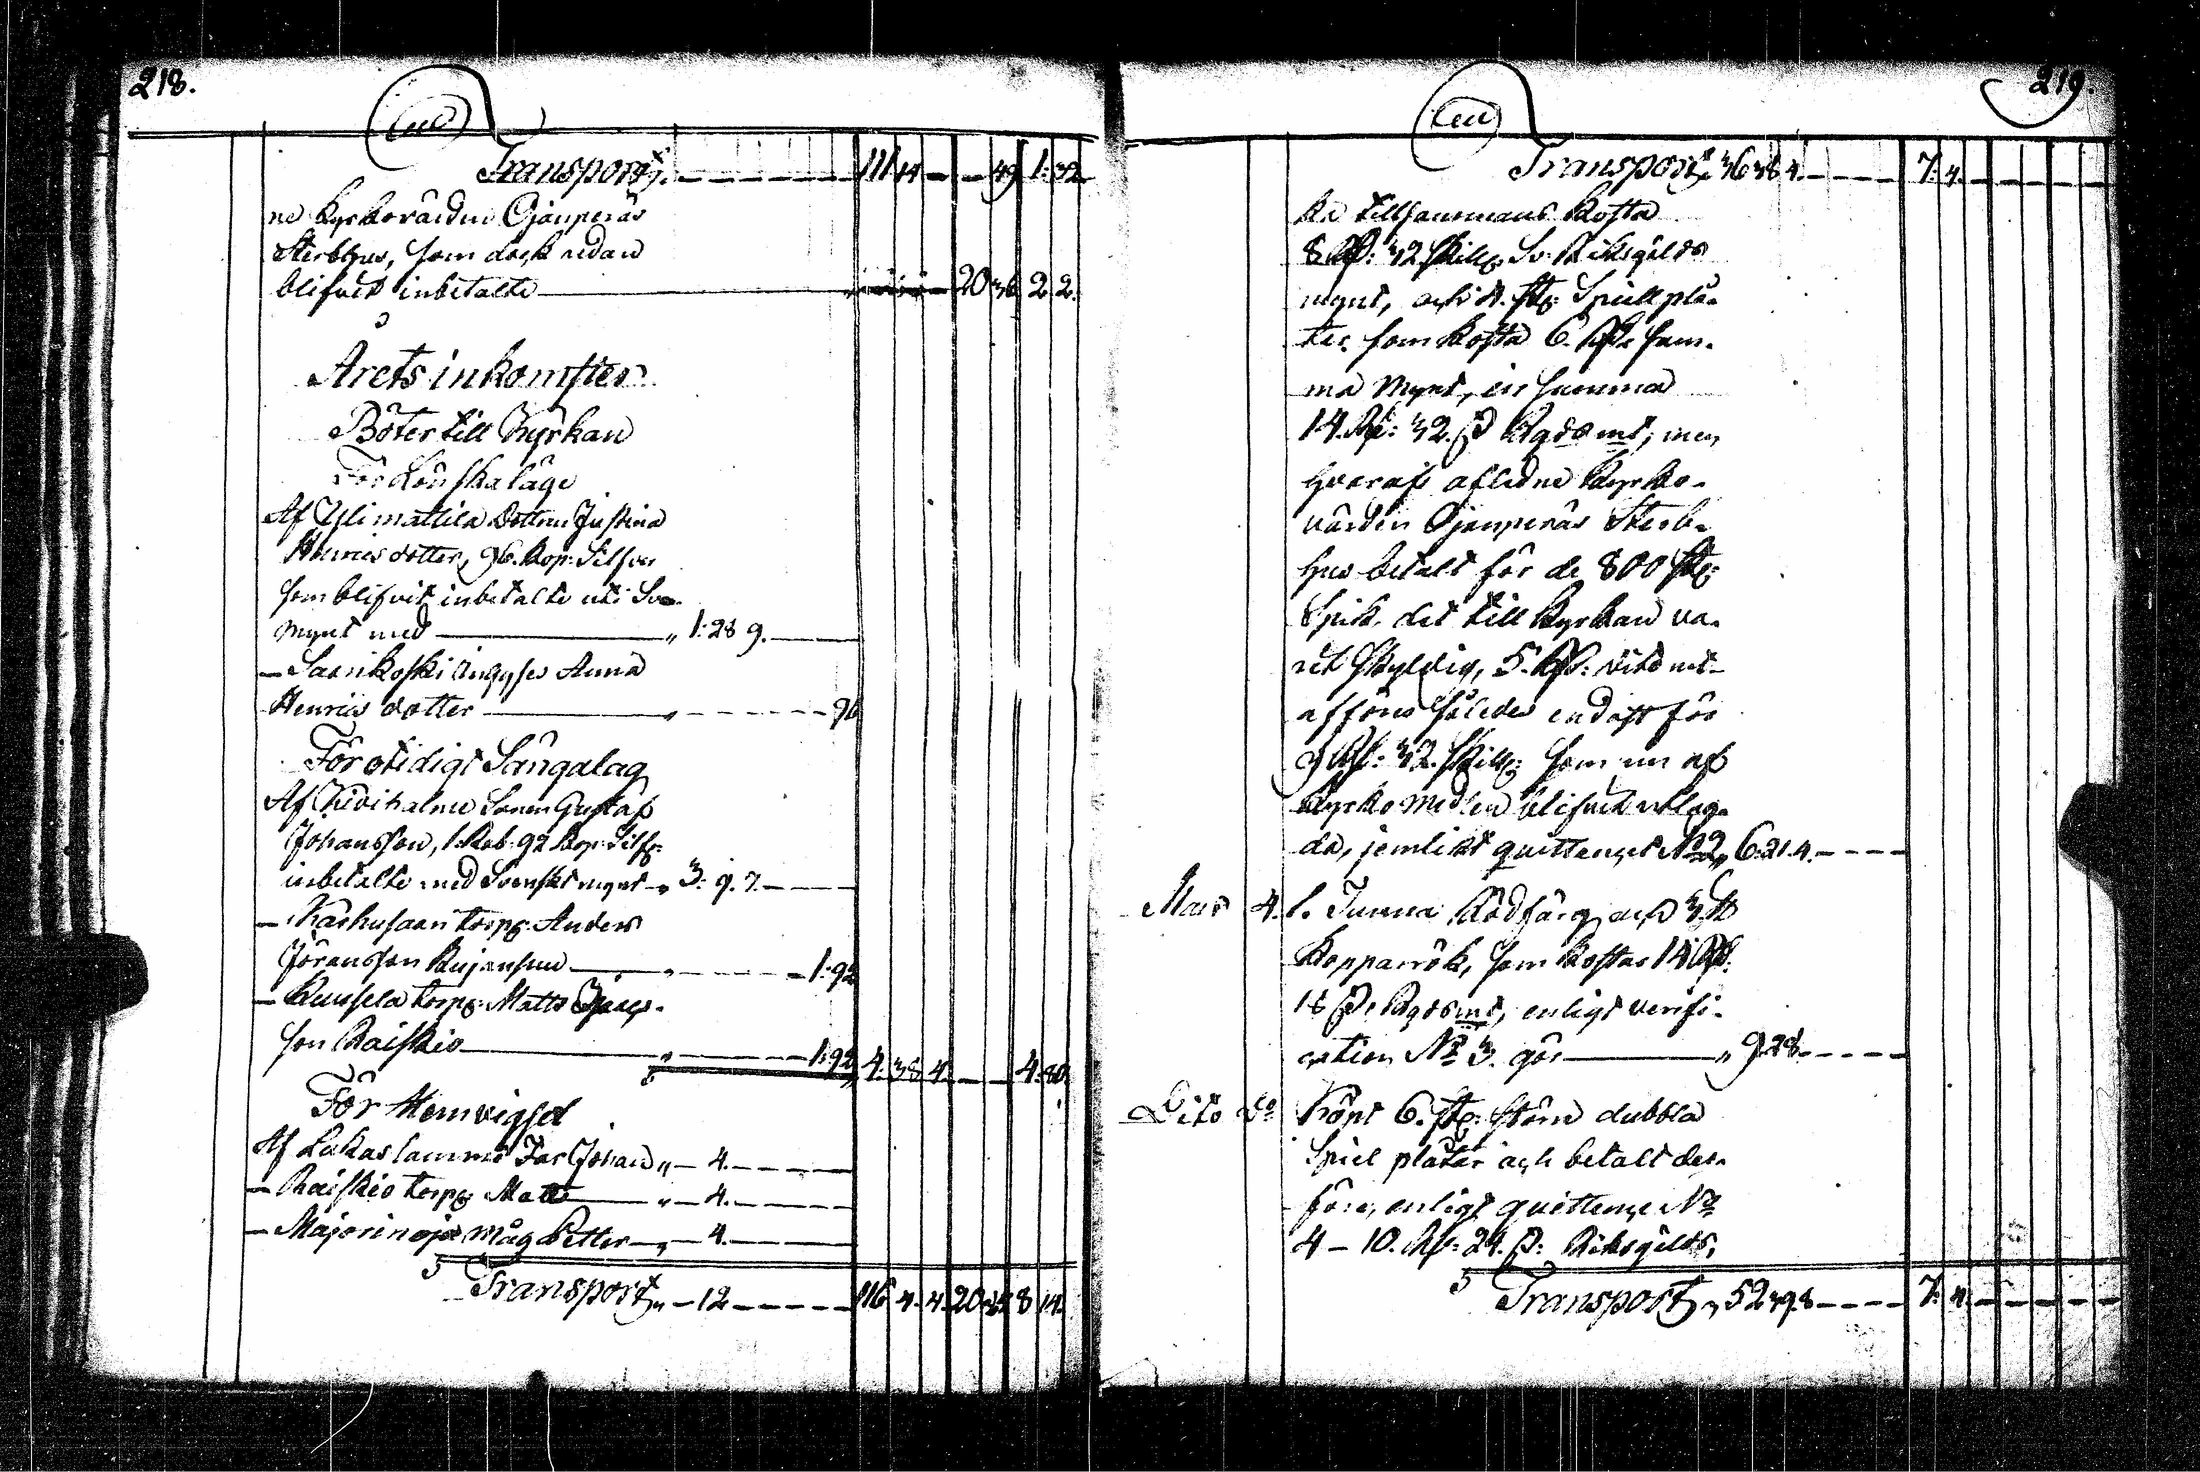 218.
Transport. — — — 111 14 — — 49 1: 32
ne Kyrkovärden Ojanperäs
Sterbhus, som dock redan
blifvit inbetalte — 20 36 2 2.
Årets inkomster
Böter till Kyrkan
För Lönskaläge
Af Ylimattila Dottren Justina
Henrics dotter, 96. Kop: Silfver
som blifvit inbetalte uti Sv.
mynt med — „ 1: 28 9. —
— Saarikoski Anna
Henrics dotter — „ — — — 96
För otidigt Sängalag
Af Sonen Gustaf
Johansson, 1. Rub. 92 Kop: Silfr
inbetalte med Svenskt mynt „ 3: 9. 7. —
— Karhusaari torp: Anders
Jöransson — „ — — — 1: 92
— Kuusela torp: Matts
son Raiskio — „ — — — 1: 92 4. 38 4. — — 4: 80
För Hemvigsel
Af Lukaslammi Johan „ — 4. — — —
— Raiskio torp: Matts — „ — 4. — — —
— Majorinoja måg Petter — „ — 4. — — —
Transport „ — 12 — — — 116 4. 4. 20 8 14.
219.
Transport „ 36 38 4. — — — 7: 4. — — —
ka tillsammans kosta
8 Rd: 32 Skill: Sv. Riksgälds
mynt, och 4. st: Spiellplå-
ter som kosta 6. Rd sam-
ma mynt, en summa
14. Rd: 32. s Rgdsmt; men
hvaraf aflidne Kyrko-
värden Ojanperäs Sterb-
hus betalt för de 800 st:
Spik, det till Kyrkan va-
rit skyldig, 5. Rd: dito mt
afföres således endast för
9 Rd: 32. Skill: som nu af
Kyrko medlen blifvit utlag-
da, jemlikt quittencet N:2 „ 6. 21. 4. — — —
Mars 4. 1. Tunna Rödfärg och 3. ℔
Kopparrök, som kostar 14 Rd:
18 s Rgdsmt, enligt verifi-
cation N:o 3. gör — „ 9. 28 — — —
Dito d:o Köpt 6. st: större dubbla
Spiel plåtar och betalt der-
före, enligt quittence N:o
4 — 10. Rd: 24. s: Riksgälds.
Transport „ 52 39. 8 — — — 7: 4. — — —